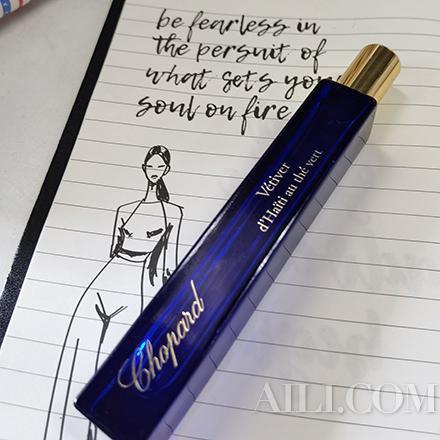 be fearless in
the persuit of
what sets you
soul on fire
Vétiver
d'Haïti au thé vert
Chopard
AILI.COM